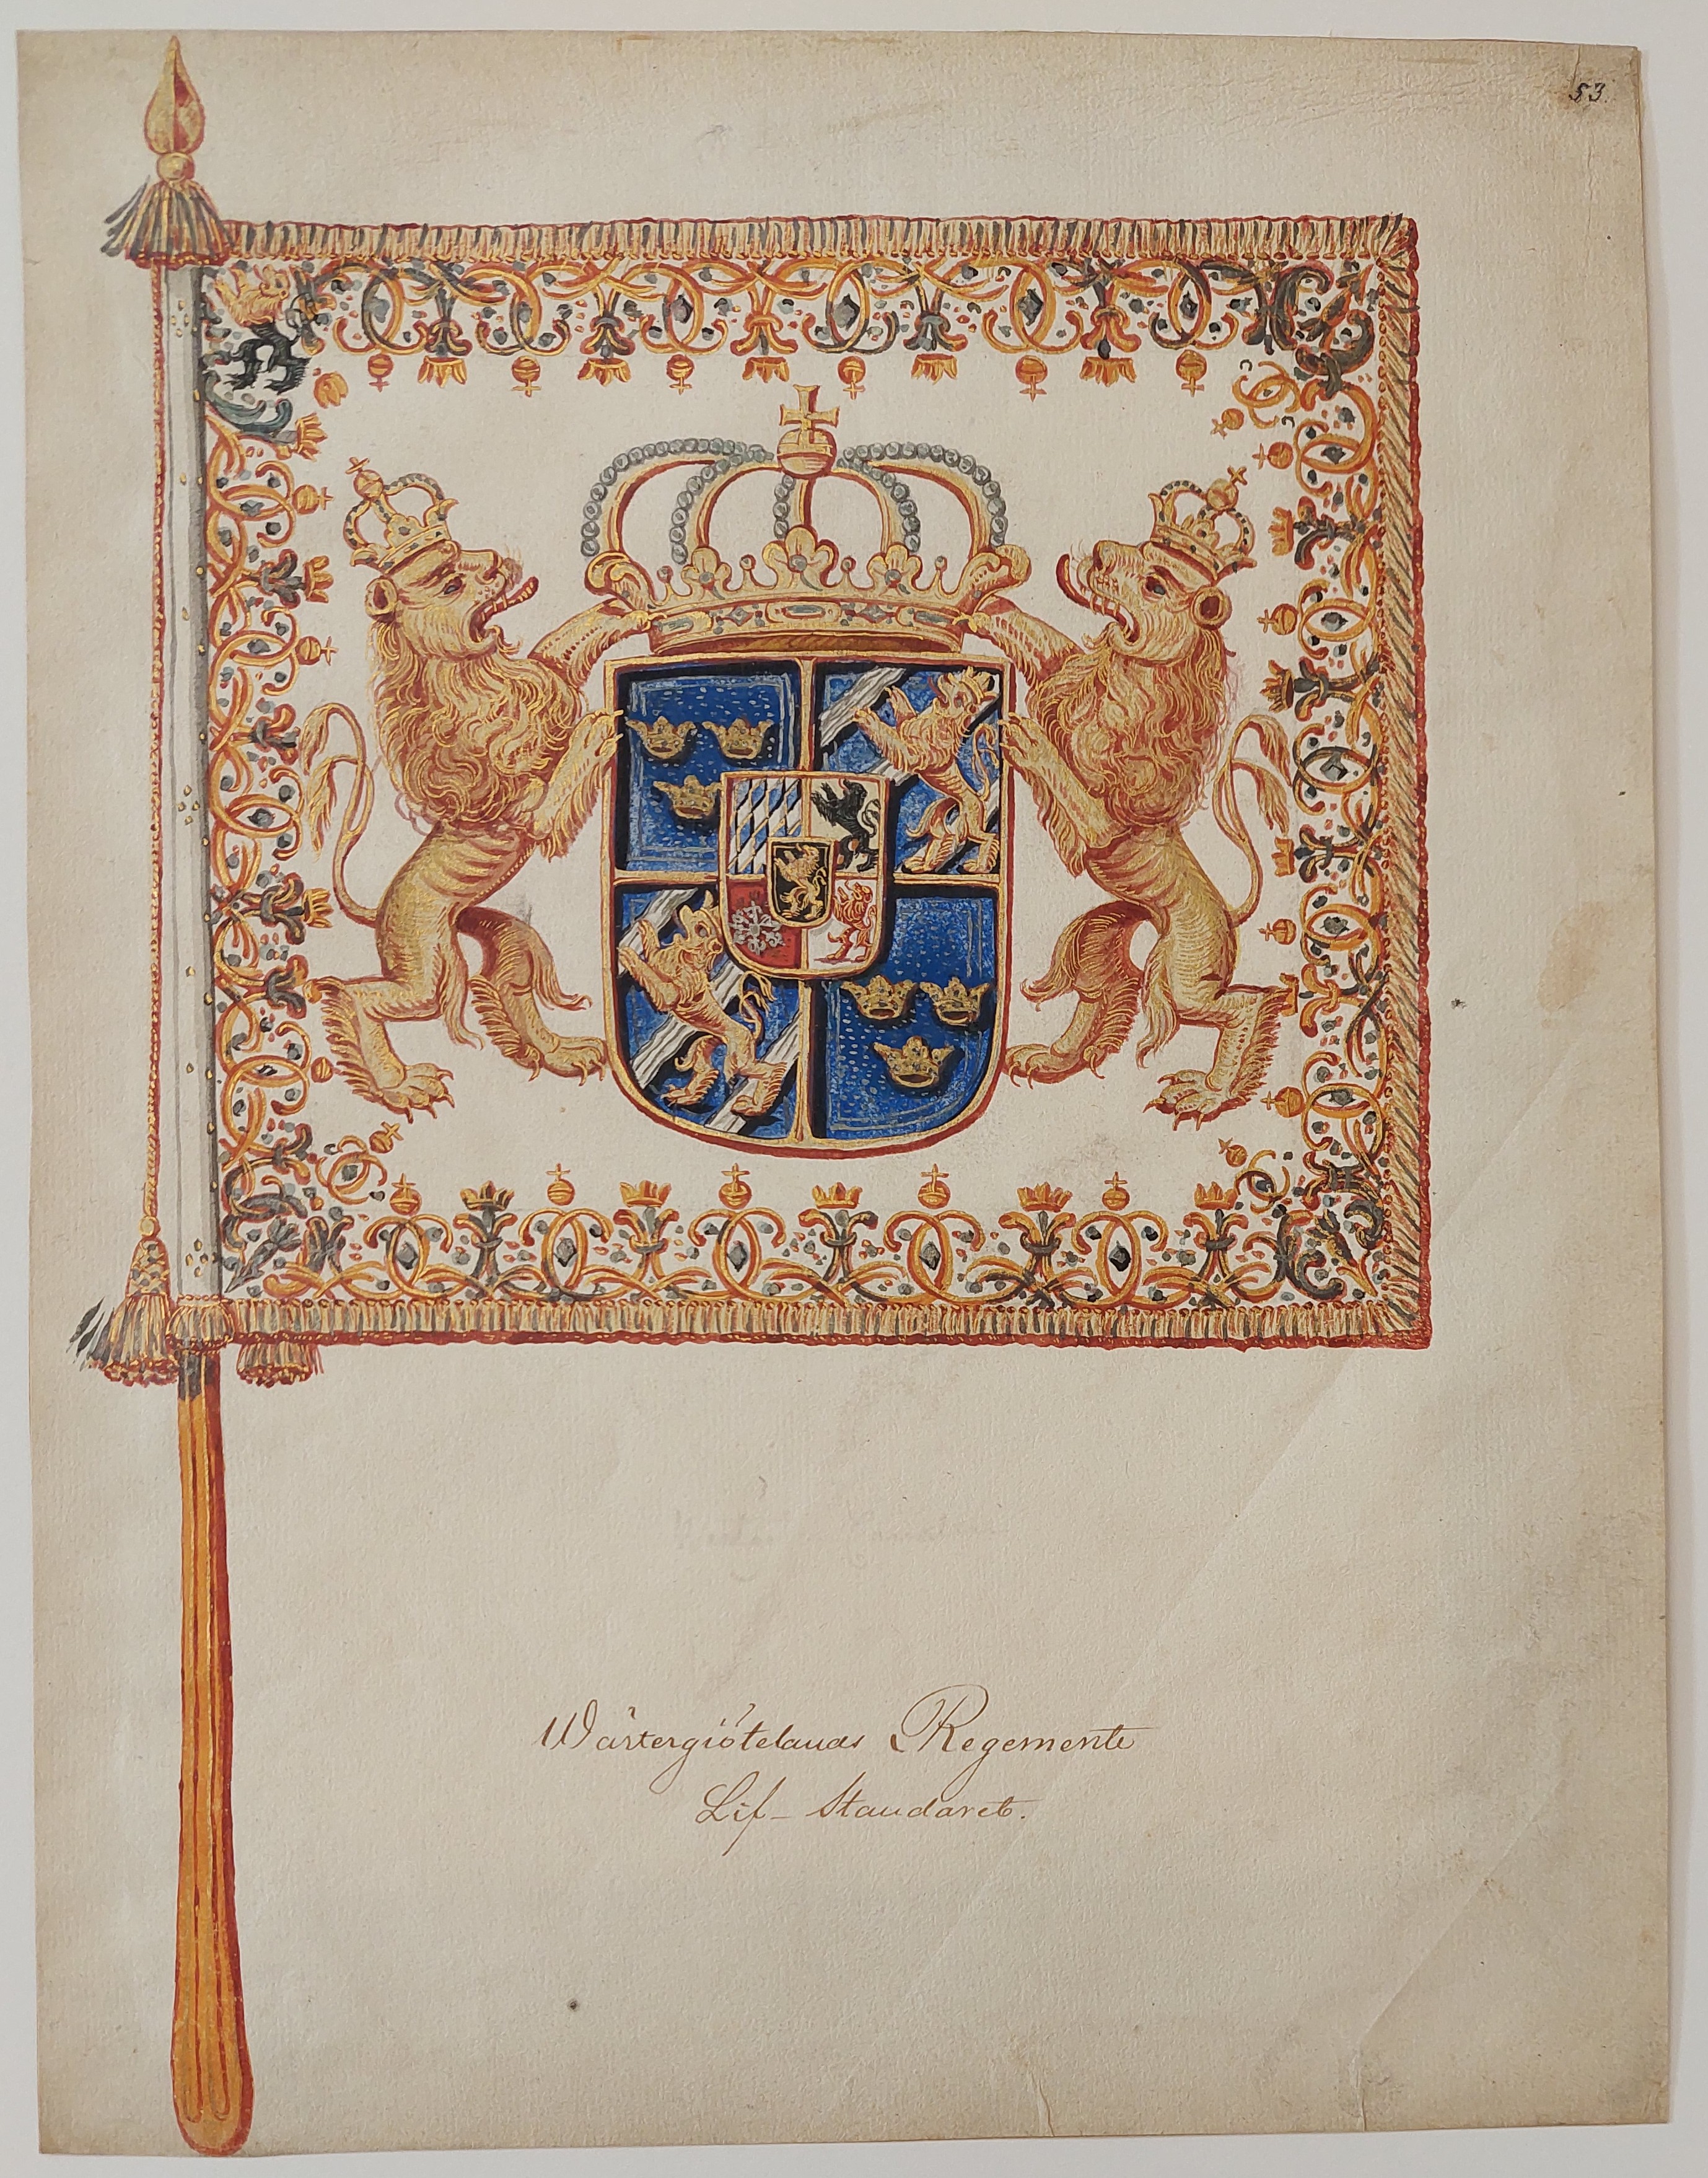 53.
Wästergiötelands Regemente
Lif- Standaret.